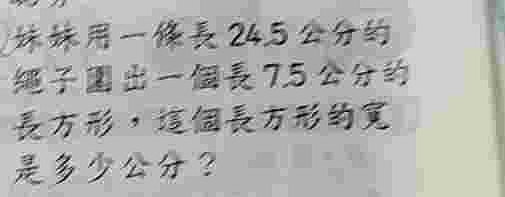 妹妹用一條長24.5公分的
繩子圍出一個長7.5公分的
長方形，這個長方形的寬
是多少公分？